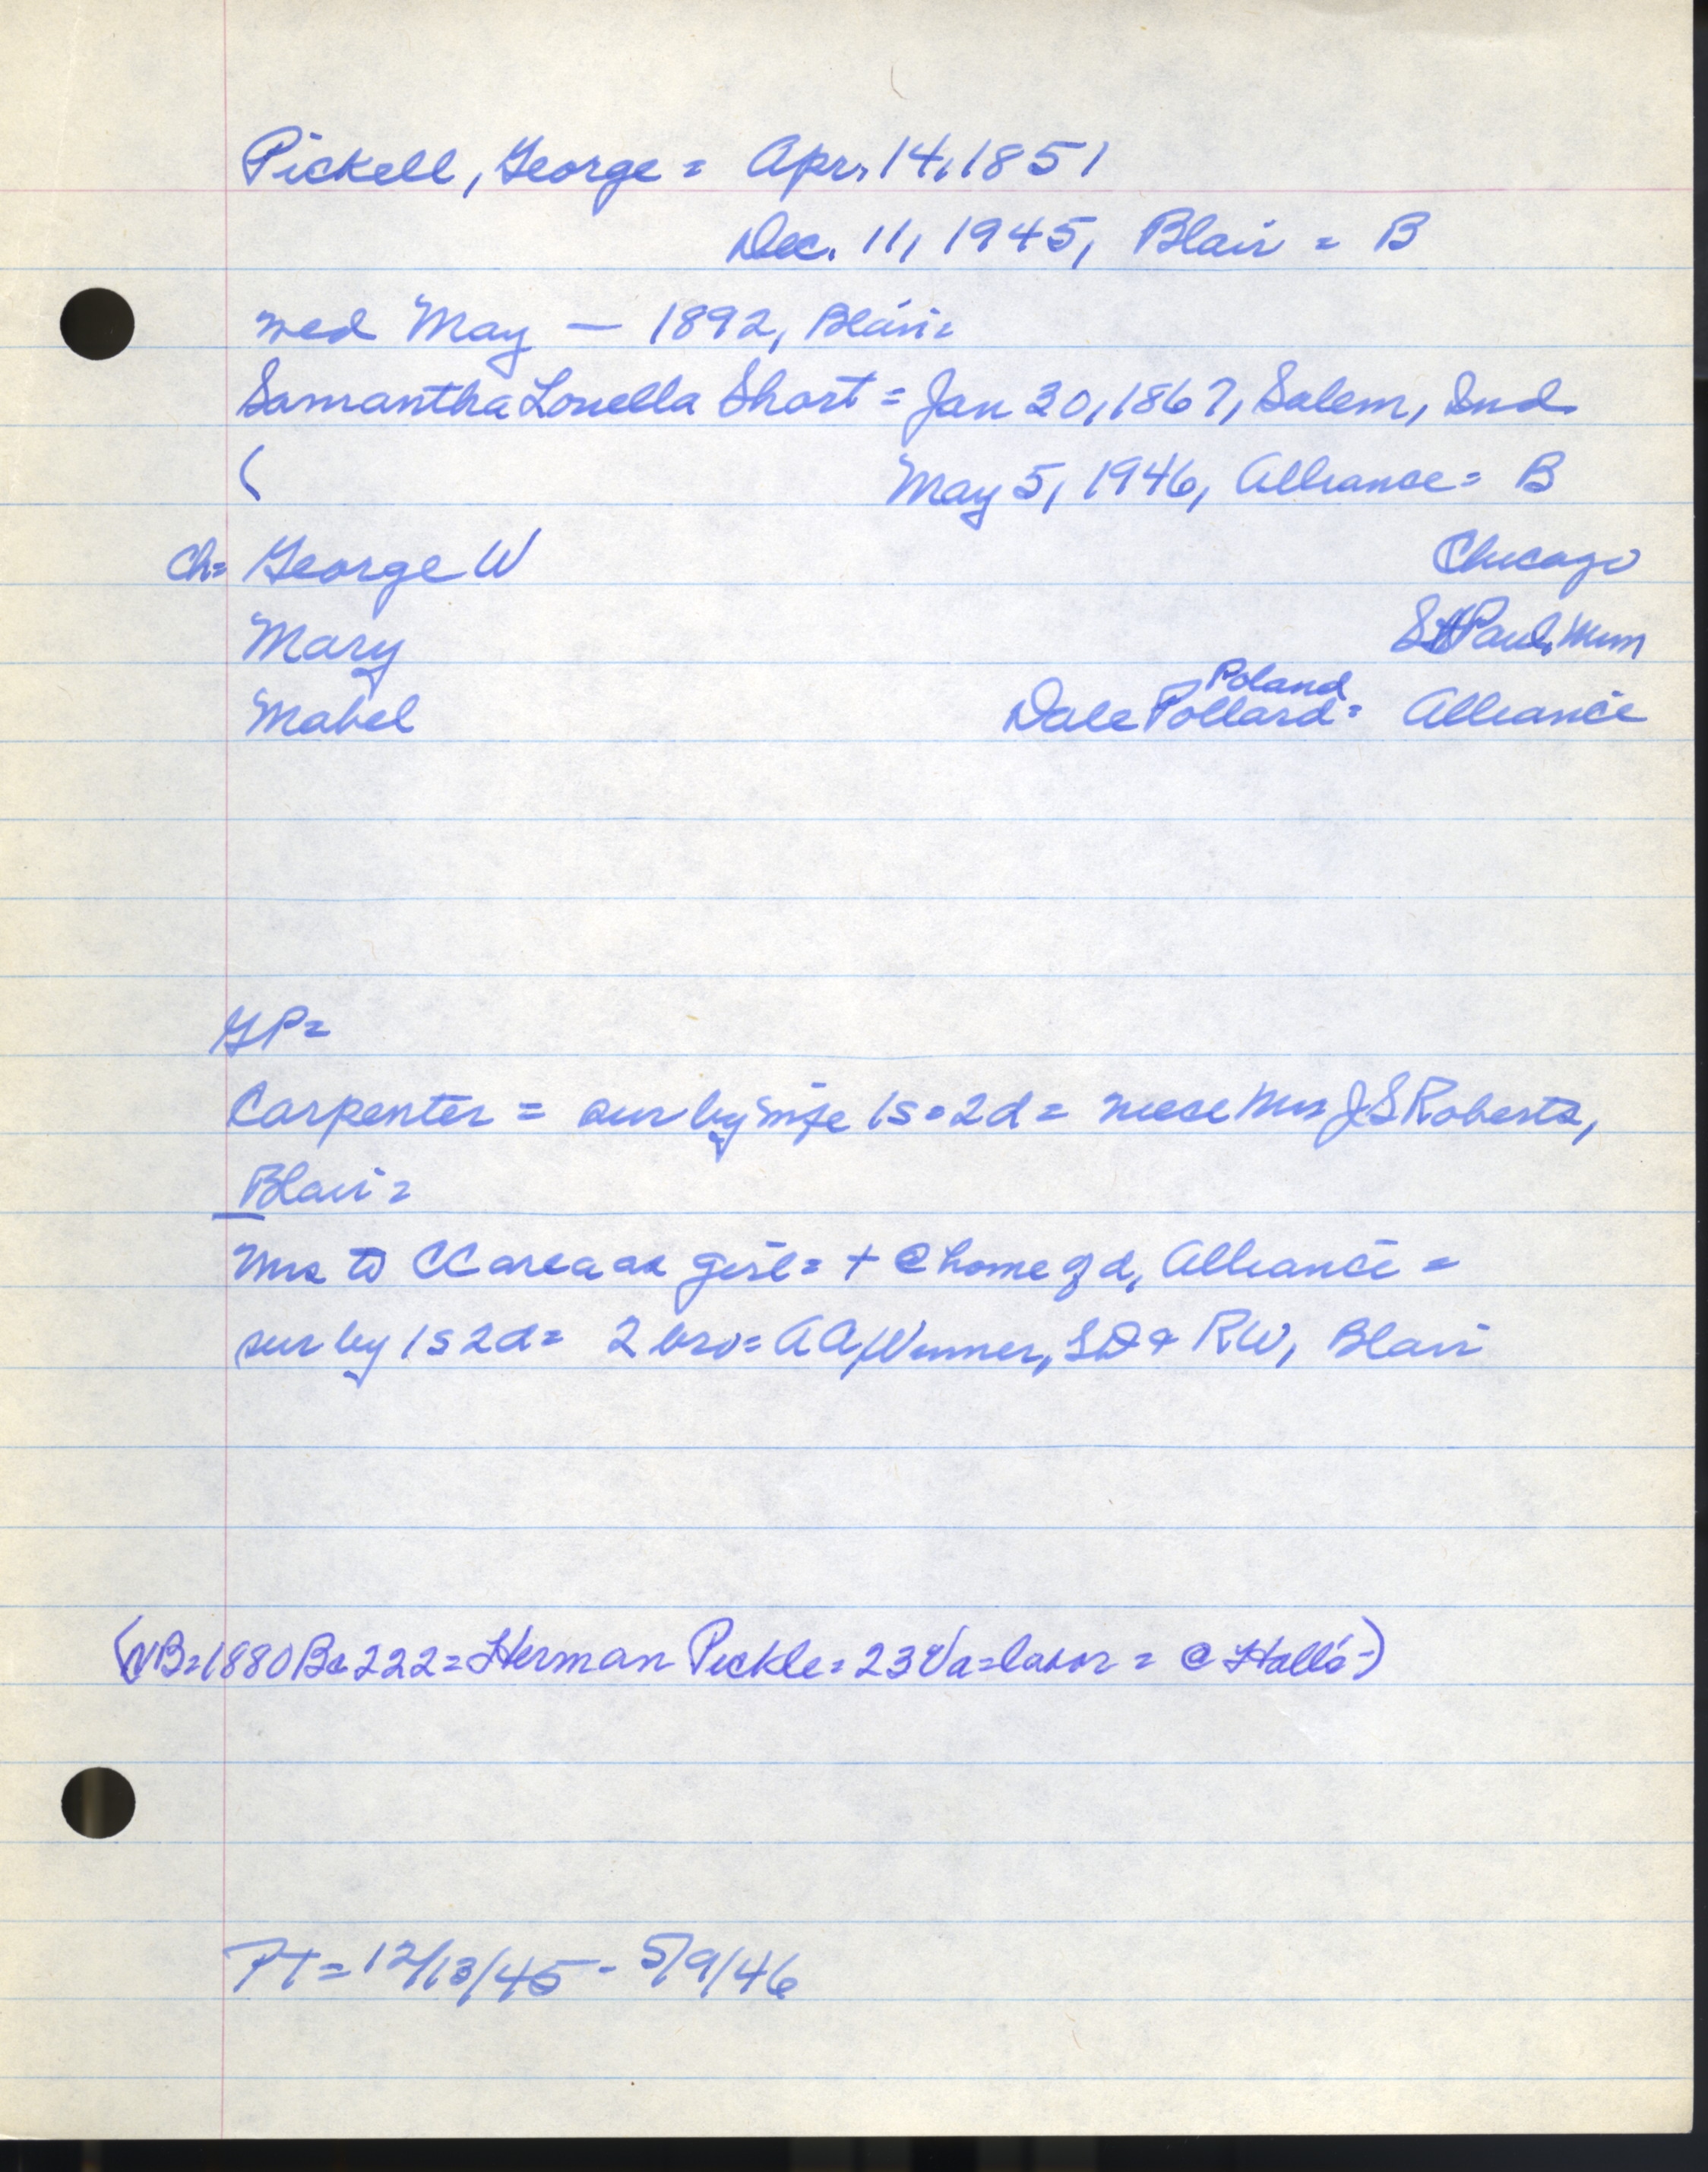 Pickell, George = Apr. 14, 1851
Dec. 11, 1945, Blair = B
wed May — 1892, Blair =
Samantha Louella Short = Jan 30, 1867, Salem, Ind.
( May 5, 1946, Alliance = B
Ch= George W Chicago
Mary St Paul, Minn
Poland
Mabel Dale Pollard = Alliance
GP=
Carpenter = sur by wife 1s = 2d = niece Mrs J S Roberts,
Blair =
Mrs to CC area as girl = + @ home of d, Alliance =
sur by 1s 2d = 2 bro = AA, Winner, SD & RW, Blair
(NB = 1880 Bc 222 = Herman Pickle = 23 Va = labor = @ Hall's -)
PT = 12/13/45 - 5/9/46